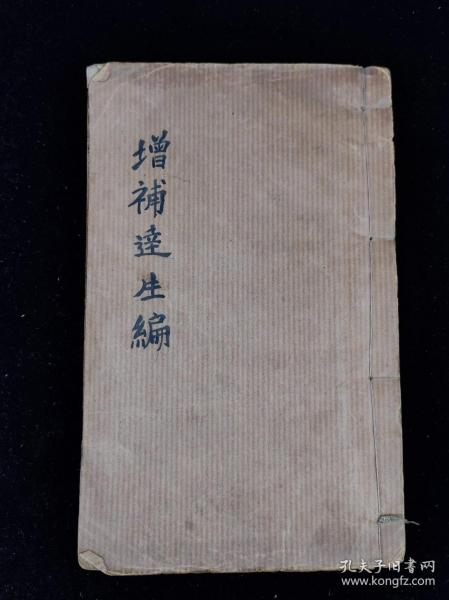 增補達生編
孔夫子旧书网
www.kongfz.com